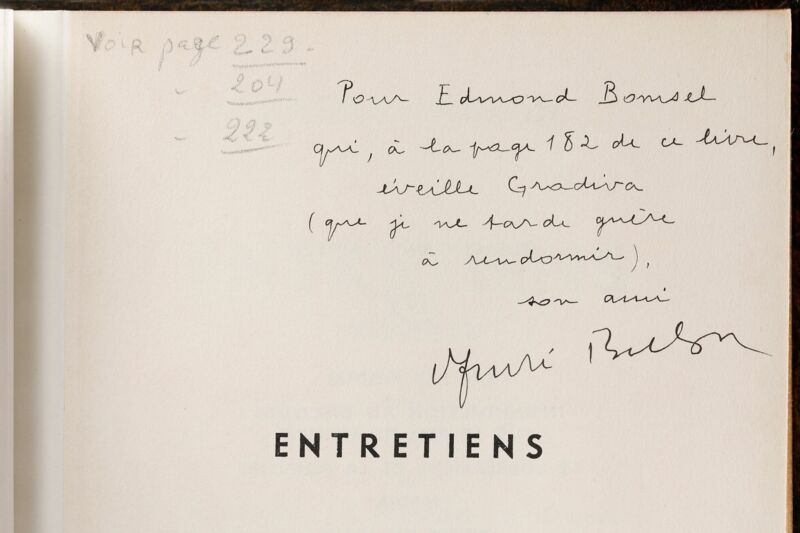 Voir page 229 -
- 204
- 222
Pour Edmond Bomsel
qui, à la page 182 de ce livre,
éveille Gradiva
(que je ne tarde guère
à rendormir),
son ami
André Breton
ENTRETIENS